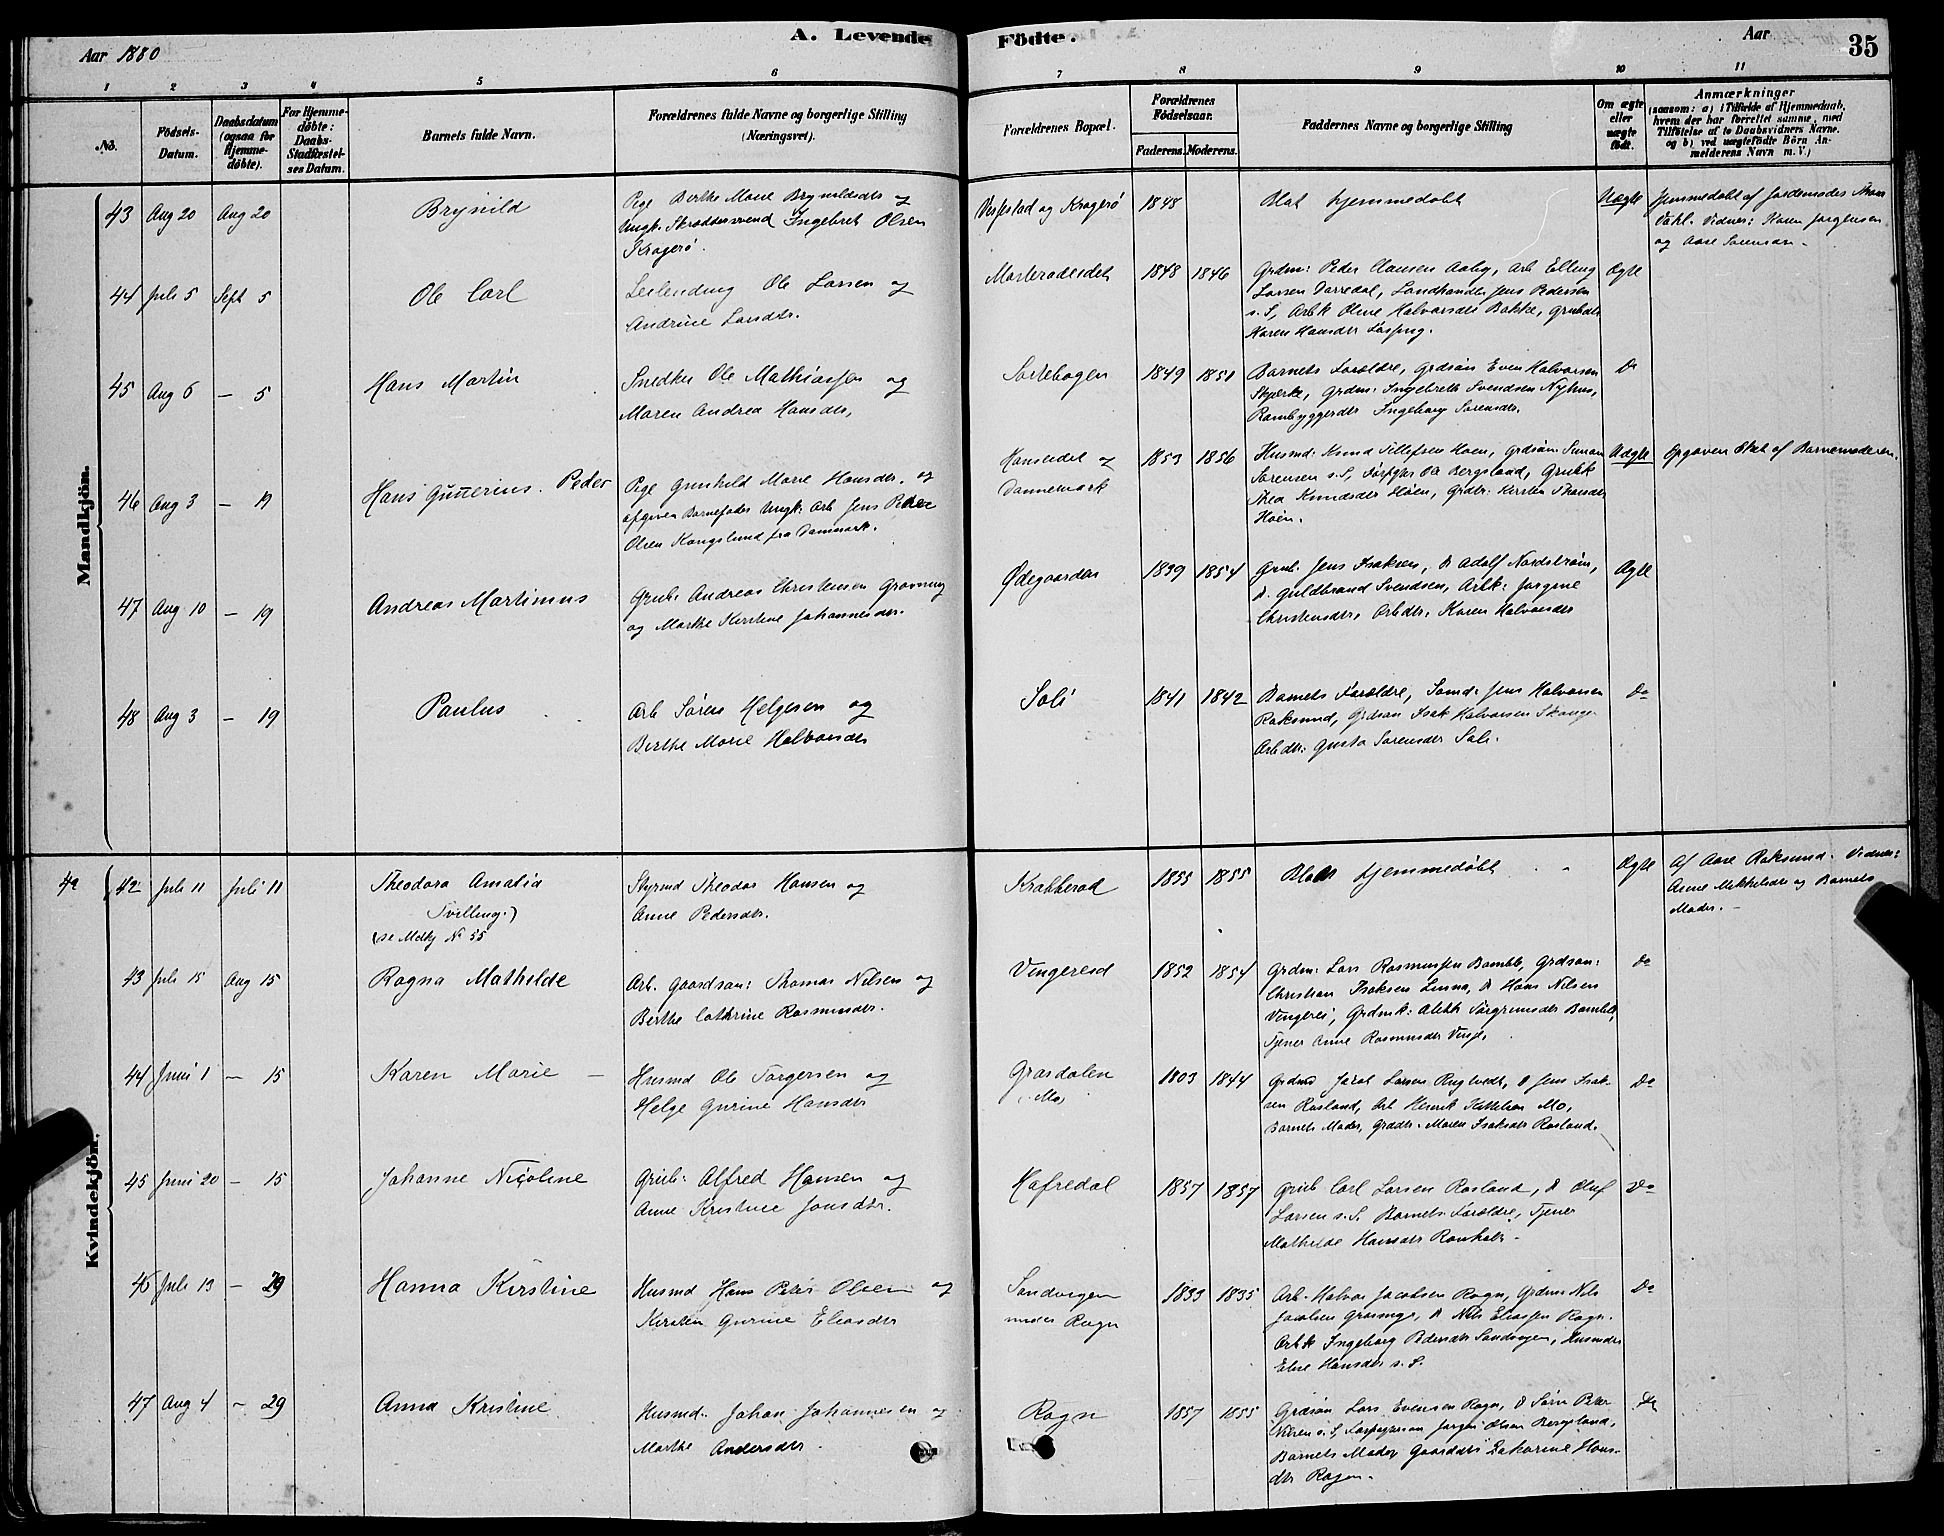 Aar 1880
A. Levende Födte.
Aar
35
1 2 3 4 5 6 7 8 9 10 11
No.
Födsels-Datum.
Daabsdatum (ogsaa for Hjemme-döbte).
For Hjemme-döbte: Daabs-Stadfæstel-ses Datum.
Barnets fulde Navn.
Forældrenes fulde Navne og borgerlige Stilling (Næringsvei).
Forældrenes Bopæl.
Forældrenes Födselsaar.
Faderens. Moderens.
Faddernes Navne og borgerlige Stilling
Om ægte eller uægte födt.
Anmærkninger
(saasom: a) i Tilfælde af Hjemmedaab, hvem der har forrettet samme, med Tilföielse af to Daabsvidners Navne. og b) ved uægtefödte Börn An-melderens Navn m. V.)
Mandkjön.
43 Aug 20 Aug 20 Brynild
Pige Berthe Marie Brynildsdr og
Ungk. Skræddersvend Ingebret Olsen
Kragerö.
og Kragerö 1848
Blot hjemmedöbt
Uægte
Hjemmedöbt af Jordemoder
Dahl. Vidner: Karen Jorgensen
og Aase Sorensen -
44 Juli 5 Sept 5 Ole Carl
Leilending Ole Larsen og
Andrine Larsdr.
1848 1846
Grdm: Peder Clausen Aaby, Arb Elling
Larsen Darredal, Landhandler Jens Pedersen
s. S, Arbk Oline Halvorsdr Bakke, Grubdr
Karen Hansdr
Ægte
45 Aug 6 - 5 Hans Martin
Snedker Ole Mathiassen og
Maren Andrea Hansdr,
Sortebogen 1849 1851
Barnets Forældre, Grdsön Even Halvorsen
Grdm: Ingebreth Svendsen Nyhus,
Ingeborg Sorensdr.
Do
46 Aug 3 - 19 Hans Gunerius. Peder
Pige Gunhild Marie Hansdr. og
opgiven Barnefader Ungk: Arb Jens Peder
Olsen Kongslund fra Danmark.
og
Dannemark
1853 1856
Husmd: Knud Tellefsen Hoen, Grdsön: Simon
Sorensen s. S, Ole Bergsland, Grubk
Thea Knudsdr Höen, Grdr: Kirsten
Hoen.
Uægte
Opgaven Skel af Barnemoderen.
47 Aug 10 - 19 Andreas Martinius
Grub. Andreas Christensen Gravning
og Marthe Kirstine Johannesdr.
Ødegaarden 1839 1854
Grub. Jens Isaksen, D Adolf Nordström,
D. Guldbrand Svendsen, Arbk: Jorgine
Christensdr, Arbdr. Karen Halvorsdr
Ægte
48 Aug 3 - 19 Paulus
Arb Sören Helgesen og
Berthe Marie Halvorsdr
Soli 1841 1842
Barnets Forældre, Jens Halvorsen
Raksund, Grdsön Isak Halvorsen
Arbdr: Gusta Sorensdr Soli.
Do
Kvindekjön.
42 Juli 11 Juli 11 Theodora Amalia
Tvilling.)
(se Mdkj No 55
Styrmd Theodor Hansen og
Anne Pedersdr.
Krabberød 1855 1855
Blot hjemmedöbt
Ægte
Af Aase Raksund. Vidner:
Anne Mikkelsdr og Barnets
Moder. -
43 Juli 15 Aug 15 Ragna Mathilde
Arb. Gaardsøn: Thomas Nilsen og
Berthe Cathrine Rasmusdr.
1852 1854
Grdm: Lars Rasmussen Bamble, Grdsøn:
Christian Isaksen Linna, D Hans Nilsen
Grdmk: Torgrimsdr Bamble,
Tjener Anne Rasmusdr
Do
44 Juni 1 - 15 Karen Marie -
Husmd Ole Torgersen og
Helge Gurine Hansdr
Grasdalen
(Mo)
1803 1844
Grdmd Jacob Larsen Rugtvedt, D Jens Isak-
sen Rosland, Arb Henrik Kittelsen Mo,
Barnets Moder, Grddr. Maren Isaksdr Rosland.
Do
45 Juni 20 - 15 Johanne Nicoline
Grub: Alfred Hansen og
Anne Kristine Jonsdr.
Hafredal 1857 1857
Grub Carl Larsen Rosland, D Oluf
Larsen s. S. Barnets Forældre, Tjener
Mathilde Hansdr Ronholt -
Do
46 Juli 13 - 29 Hanna Kirstine
Husmd Hans Peter Olsen og
Kirsten Gurine Eliasdr
Sandvigen
under Rogn
1833 1835
Arb. Halvor Jacobsen Rogn, Grdm: Nils
Jacobsen D Nils Eliassen Rogn.
Arbk Ingeborg Pedersdr Sandvigen, Husmdr
Eline Hansdr s. S.
Do
47 Aug 4 - 29 Anna Kristine
Husmd. Johan Johannesen og
Marthe Andersdr.
Rogn 1857 1855
Grdsön Lars Evensen Rogn, D Sörn Peter
s. S, Jorgen Olsen Bergsland,
Barnets Moder Gaarddr: Cakarine Hans-
dtr Rogn.
Do